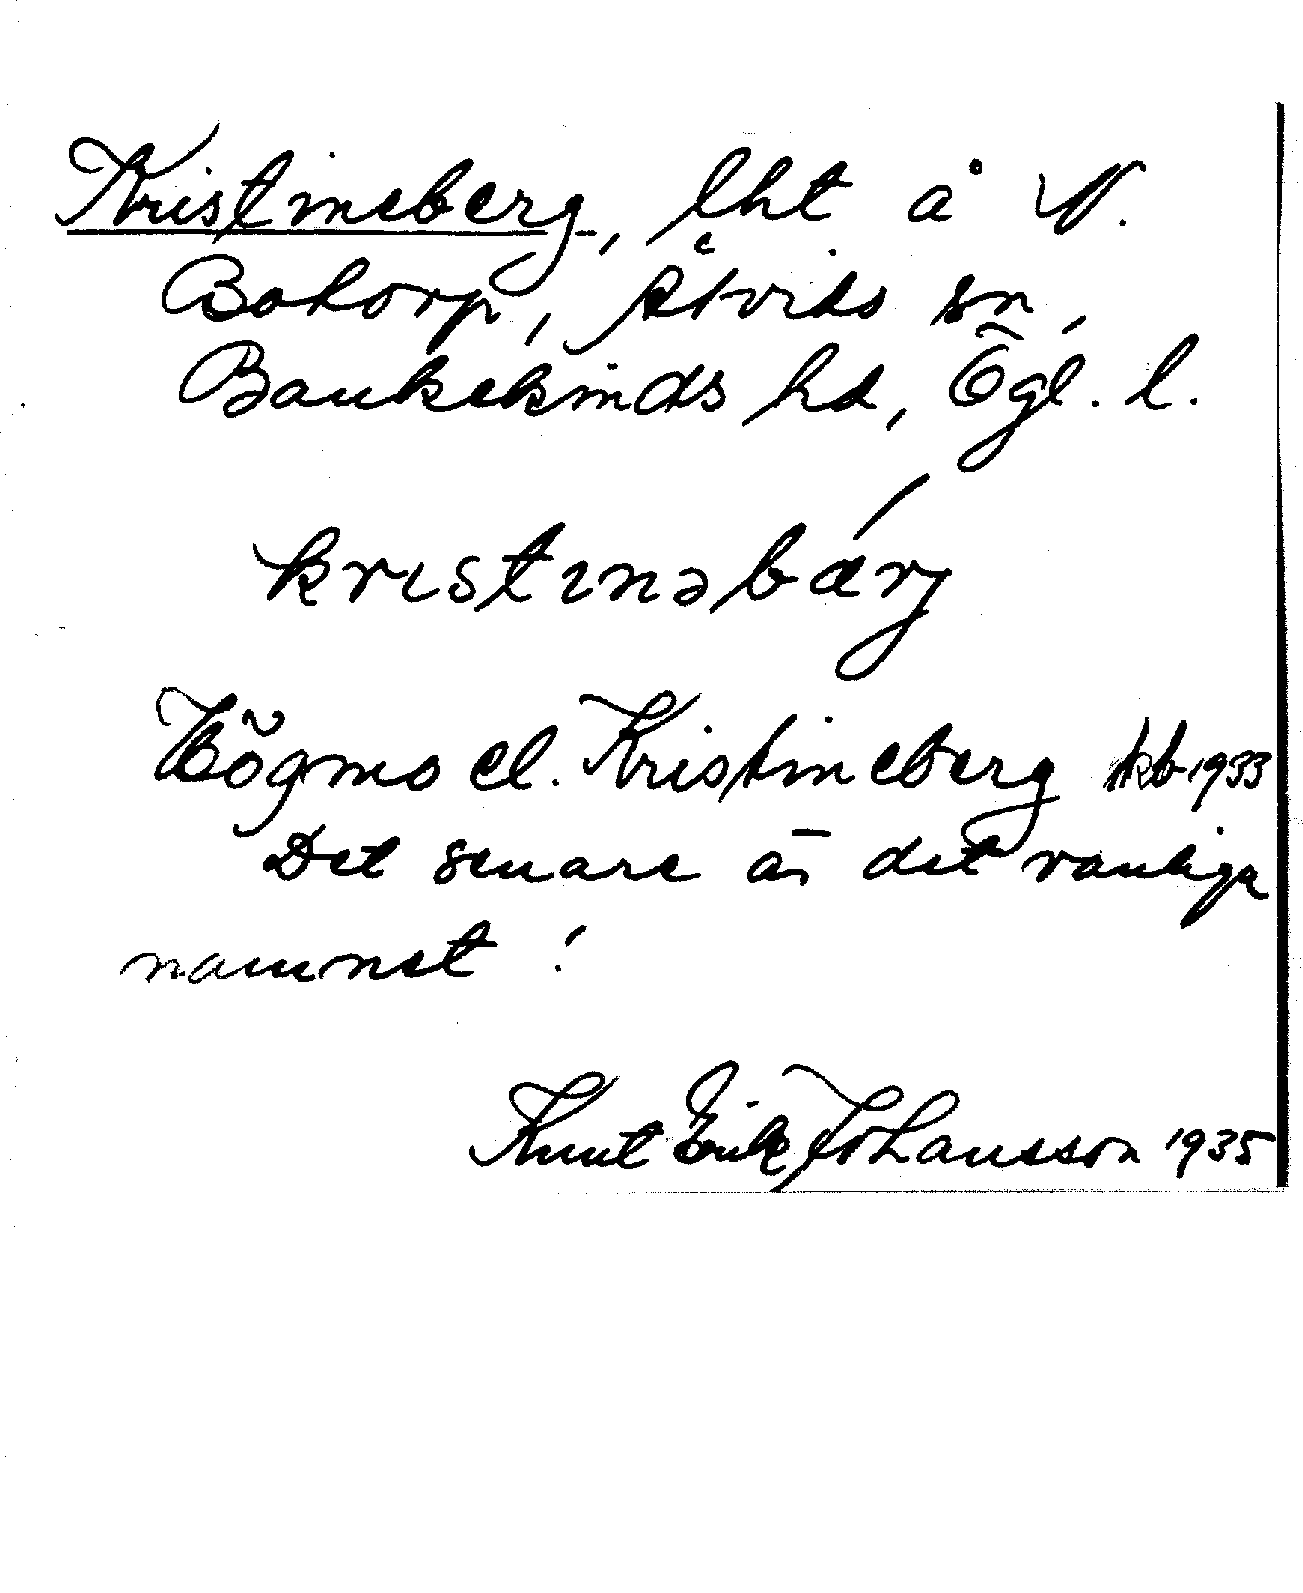 Kristineberg, lht å N.
Bodorp, Åtvids sn,
Bankekinds hd, Ögl. l.
kristinəbærj
Högmo el. Kristineberg hkb 1933
Det senare är det vanliga
namnet!
Knut Erik Johansson 1935